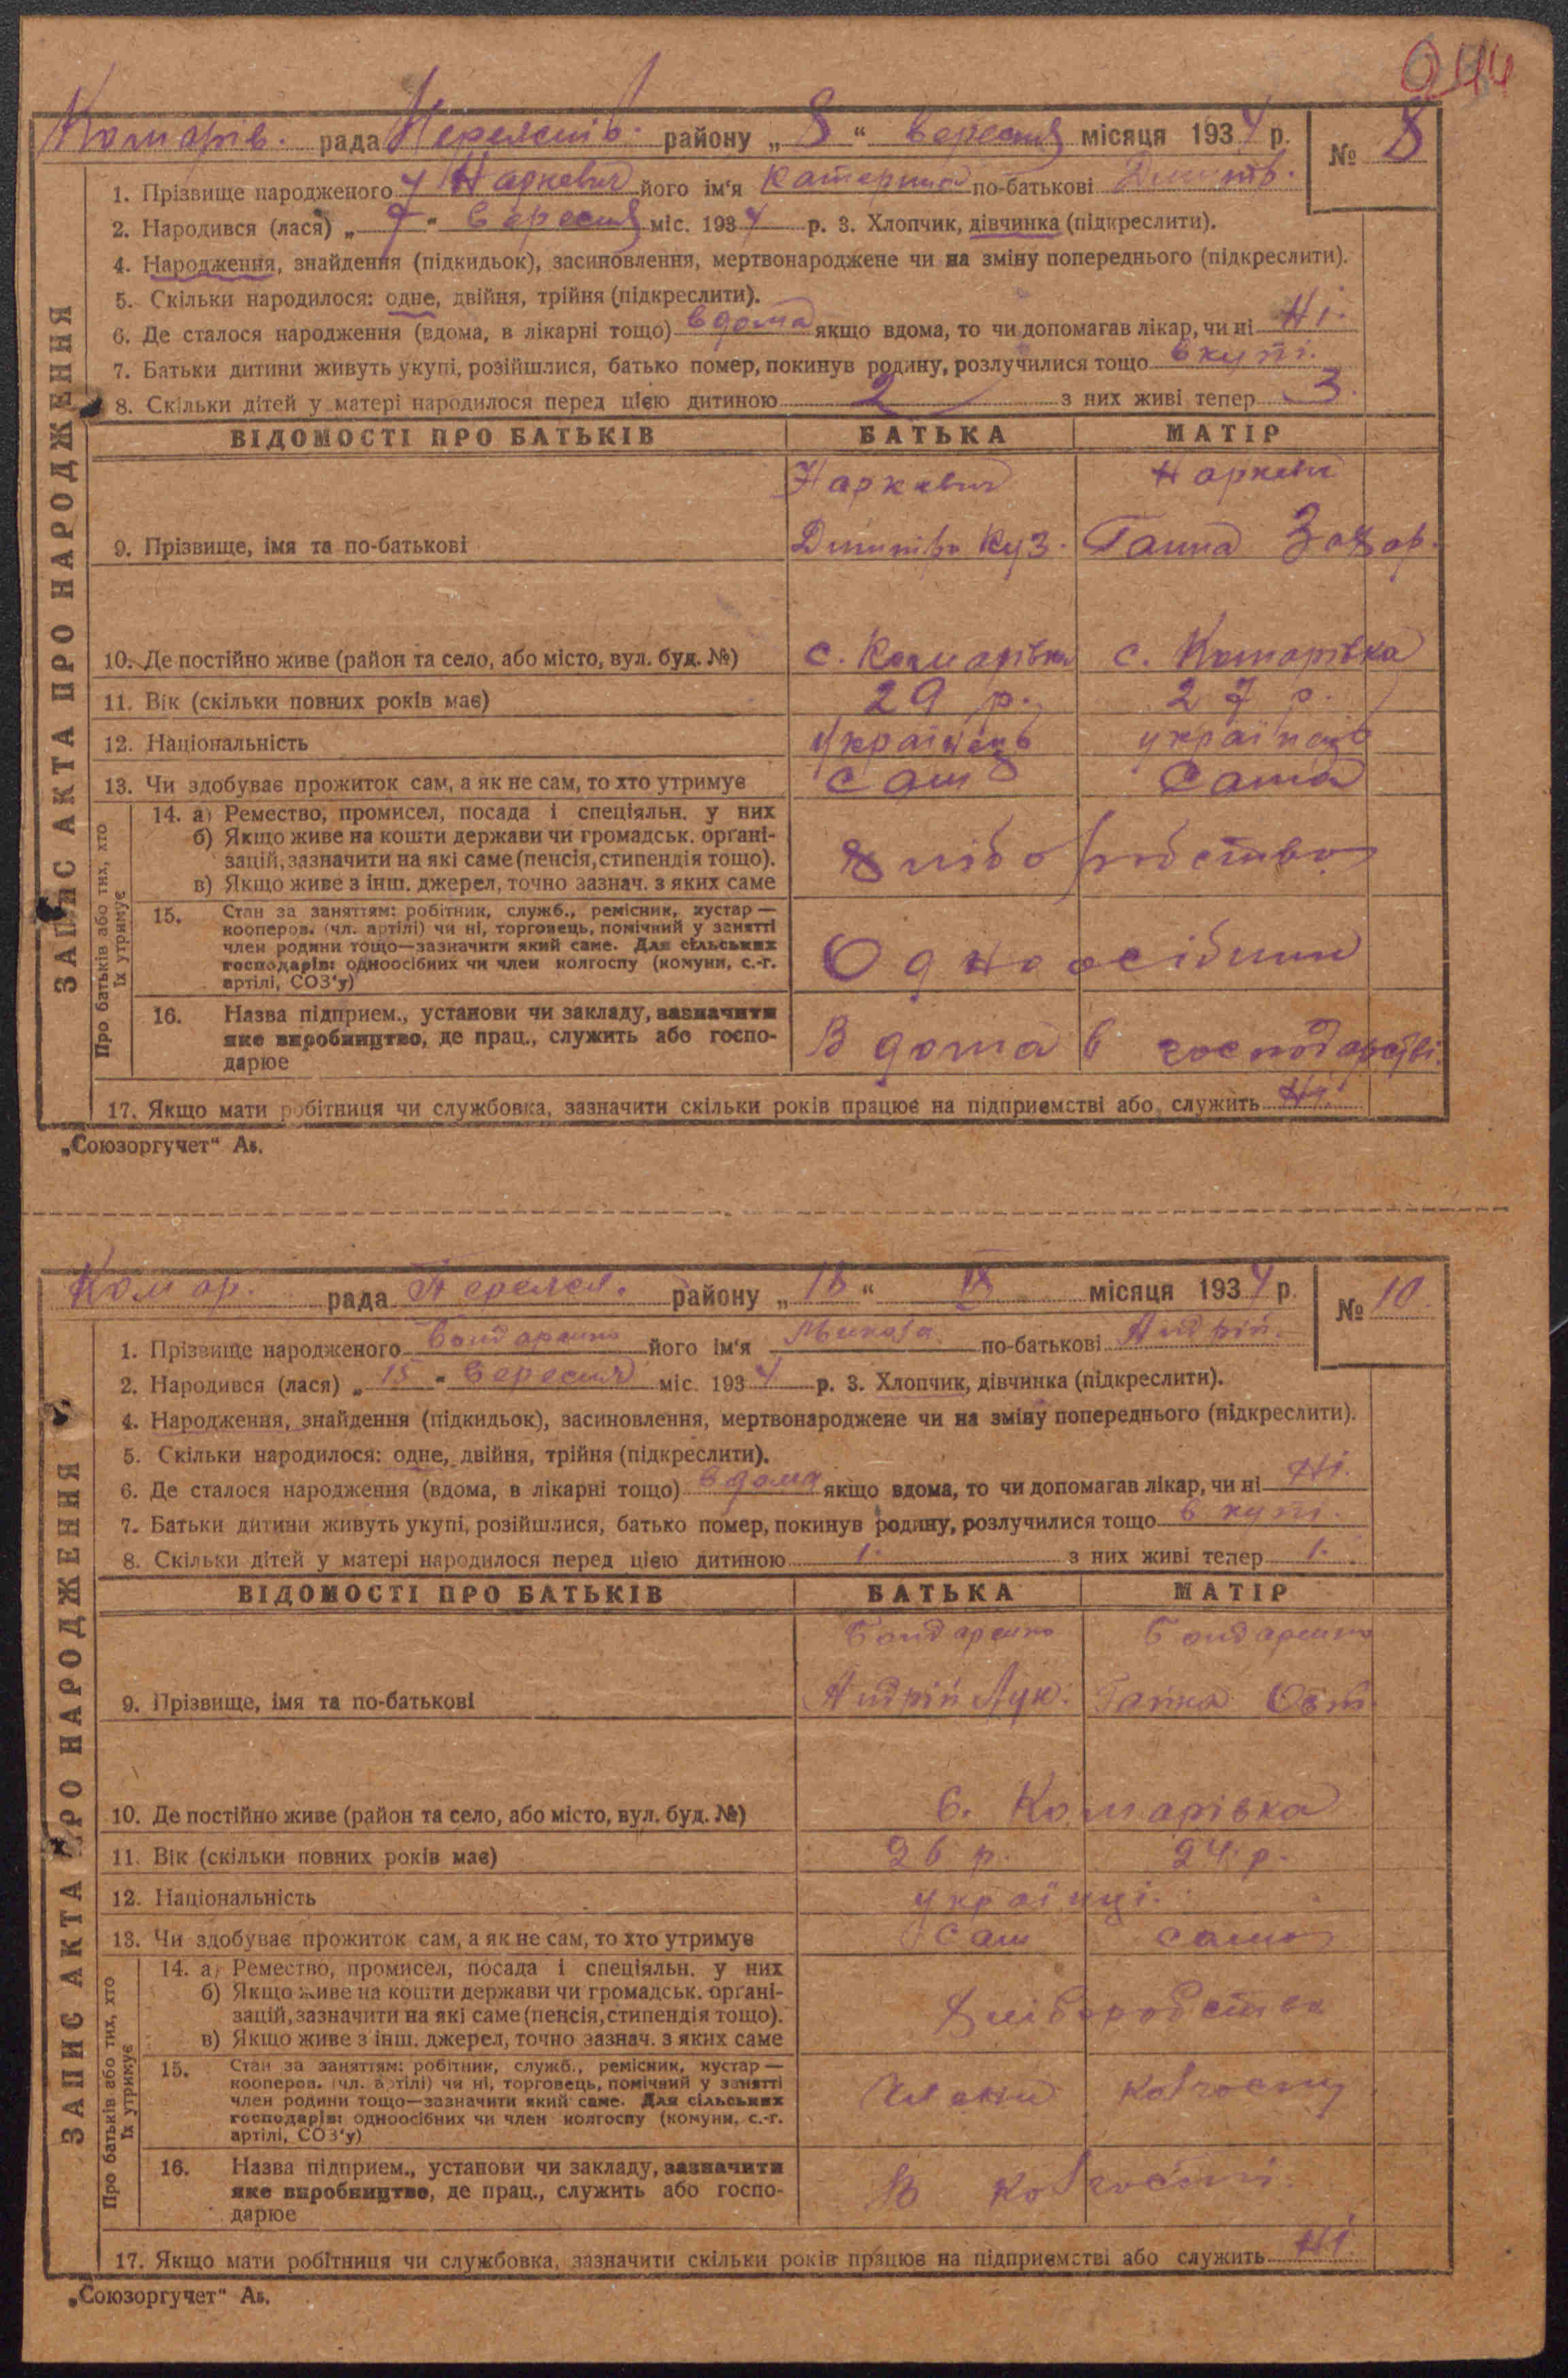 944
Комарів. рада Переяслів. району „ 8 “ вересня місяця 1934 р. № 8
1. Прізвище народженого Наркевич його ім‘я Катерина по-батькові Дмитр.
2. Народився (лася) „ 7 “ вересня міс. 1934 р. 3. Хлопчик, дівчинка (підкреслити).
4. Народження, знайдення (підкидьок), засиновлення, мертвонароджене чи на зміну попереднього (підкреслити).
5. Скільки народилося: одне, двійня, трійня (підкреслити).
6. Де сталося народження (вдома, в лікарні тощо) вдома якщо вдома, то чи допомагав лікар, чи ні Ні.
7. Батьки дитини живуть укупі, розійшлися, батько помер, покинув родину, розлучилися тощо вкупі.
8. Скільки дітей у матері народилося перед цією дитиною 2 з них живі тепер 3.
ВІДОМОСТІ ПРО БАТЬКІВ БАТЬКА МАТІР
Наркевич Наркевич
9. Прізвище, імя та по-батькові Дмитро Куз. Ганна Захар.
10. Де постійно живе (район та село, або місто, вул. буд. №) с. Комарівка с. Комарівка
11. Вік (скільки повних років має) 29 р. 27 р.
12. Національність українець українець
13. Чи здобуває прожиток сам, а як не сам, то хто утримує сам сама
14. а) Ремество, промисел, посада і спеціяльн. у них
б) Якщо живе на кошти держави чи громадськ. орґані-
зацій, зазначити на які саме (пенсія, стипендія тощо).
в) Якщо живе з інш. джерел, точно зазнач. з яких саме
хліборобство
15. Стан за заняттям: робітник, служб., ремісник, кустар —
кооперов. (чл. артілі) чи ні, торговець, помічний у занятті
член родини тощо—зазначити який саме. Для сільських
господарів: одноосібних чи член колгоспу (комуни, с.-г.
артілі, СОЗ‘у)
Одноосібник
16. Назва підприєм., установи чи закладу, зазначити
яке виробництво, де прац., служить або госпо-
дарює
Вдома в господарстві.
17. Якщо мати робітниця чи службовка, зазначити скільки років працює на підприємстві або служить Ні.
ЗАПИС АКТА ПРО НАРОДЖЕННЯ
Про батьків або тих, хто
їх утримує
„Союзоргучет“ Ав.
Комар. рада Переясл. району „ 16 “ IX місяця 1934 р. № 10.
1. Прізвище народженого Бондаренко його ім‘я Микола по-батькові Андрій.
2. Народився (лася) „ 15 “ Вересня міс. 1934 р. 3. Хлопчик, дівчинка (підкреслити).
4. Народження, знайдення (підкидьок), засиновлення, мертвонароджене чи на зміну попереднього (підкреслити).
5. Скільки народилося: одне, двійня, трійня (підкреслити).
6. Де сталося народження (вдома, в лікарні тощо) вдома якщо вдома, то чи допомагав лікар, чи ні Ні.
7. Батьки дитини живуть укупі, розійшлися, батько помер, покинув родину, розлучилися тощо вкупі.
8. Скільки дітей у матері народилося перед цією дитиною 1. з них живі тепер 1.
ВІДОМОСТІ ПРО БАТЬКІВ БАТЬКА МАТІР
Бондаренко Бондаренко
9. Прізвище, імя та по-батькові Андрій Лук. Ганна
10. Де постійно живе (район та село, або місто, вул. буд. №) С. Комарівка
11. Вік (скільки повних років має) 26 р. 24 р.
12. Національність українці.
13. Чи здобуває прожиток сам, а як не сам, то хто утримує сам сама
14. а) Ремество, промисел, посада і спеціяльн. у них
б) Якщо живе на кошти держави чи громадськ. орґані-
зацій, зазначити на які саме (пенсія, стипендія тощо).
в) Якщо живе з інш. джерел, точно зазнач. з яких саме
Хліборобство
15. Стан за заняттям: робітник, служб., ремісник, кустар —
кооперов. (чл. артілі) чи ні, торговець, помічний у занятті
член родини тощо—зазначити який саме. Для сільських
господарів: одноосібних чи член колгоспу (комуни, с.-г.
артілі, СОЗ‘у)
Члени колгоспу
16. Назва підприєм., установи чи закладу, зазначити
яке виробництво, де прац., служить або госпо-
дарює
В колгоспі.
17. Якщо мати робітниця чи службовка, зазначити скільки років працює на підприємстві або служить Ні
ЗАПИС АКТА ПРО НАРОДЖЕННЯ
Про батьків або тих, хто
їх утримує
„Союзоргучет“ Ав.